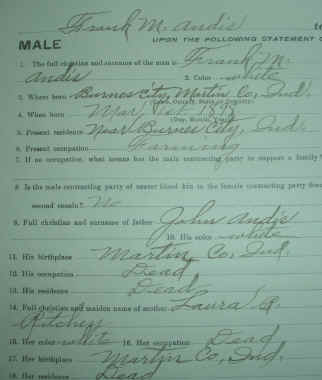 Frank M. Andis to
MALE UPON THE FOLLOWING STATEMENT O
1. The full christian and surname of the man is Frank M.
Andis 2. Color white
3. Where born Burnes City, Martin Co, Ind.
(Town, County, State or Country)
4. When born Mar 1st 1895
(Day, Month, Year)
5. Present residence Near Burnes City, Ind.
6. Present occupation Farming
7. If no occupation, what means has the male contracting party to support a family?
8. Is the male contracting party of nearer blood kin to the female contracting party than
second cousin? No
9. Full christian and surname of father John Andis
10. His color white
11. His birthplace Martin Co, Ind.
12. His occupation Dead
13. His residence Dead
14. Full christian and maiden name of mother Laura A.
Ritchey
15. Her color white 16. Her occupation Dead
17. Her birthplace Martin Co, Ind.
18. Her residence Dead